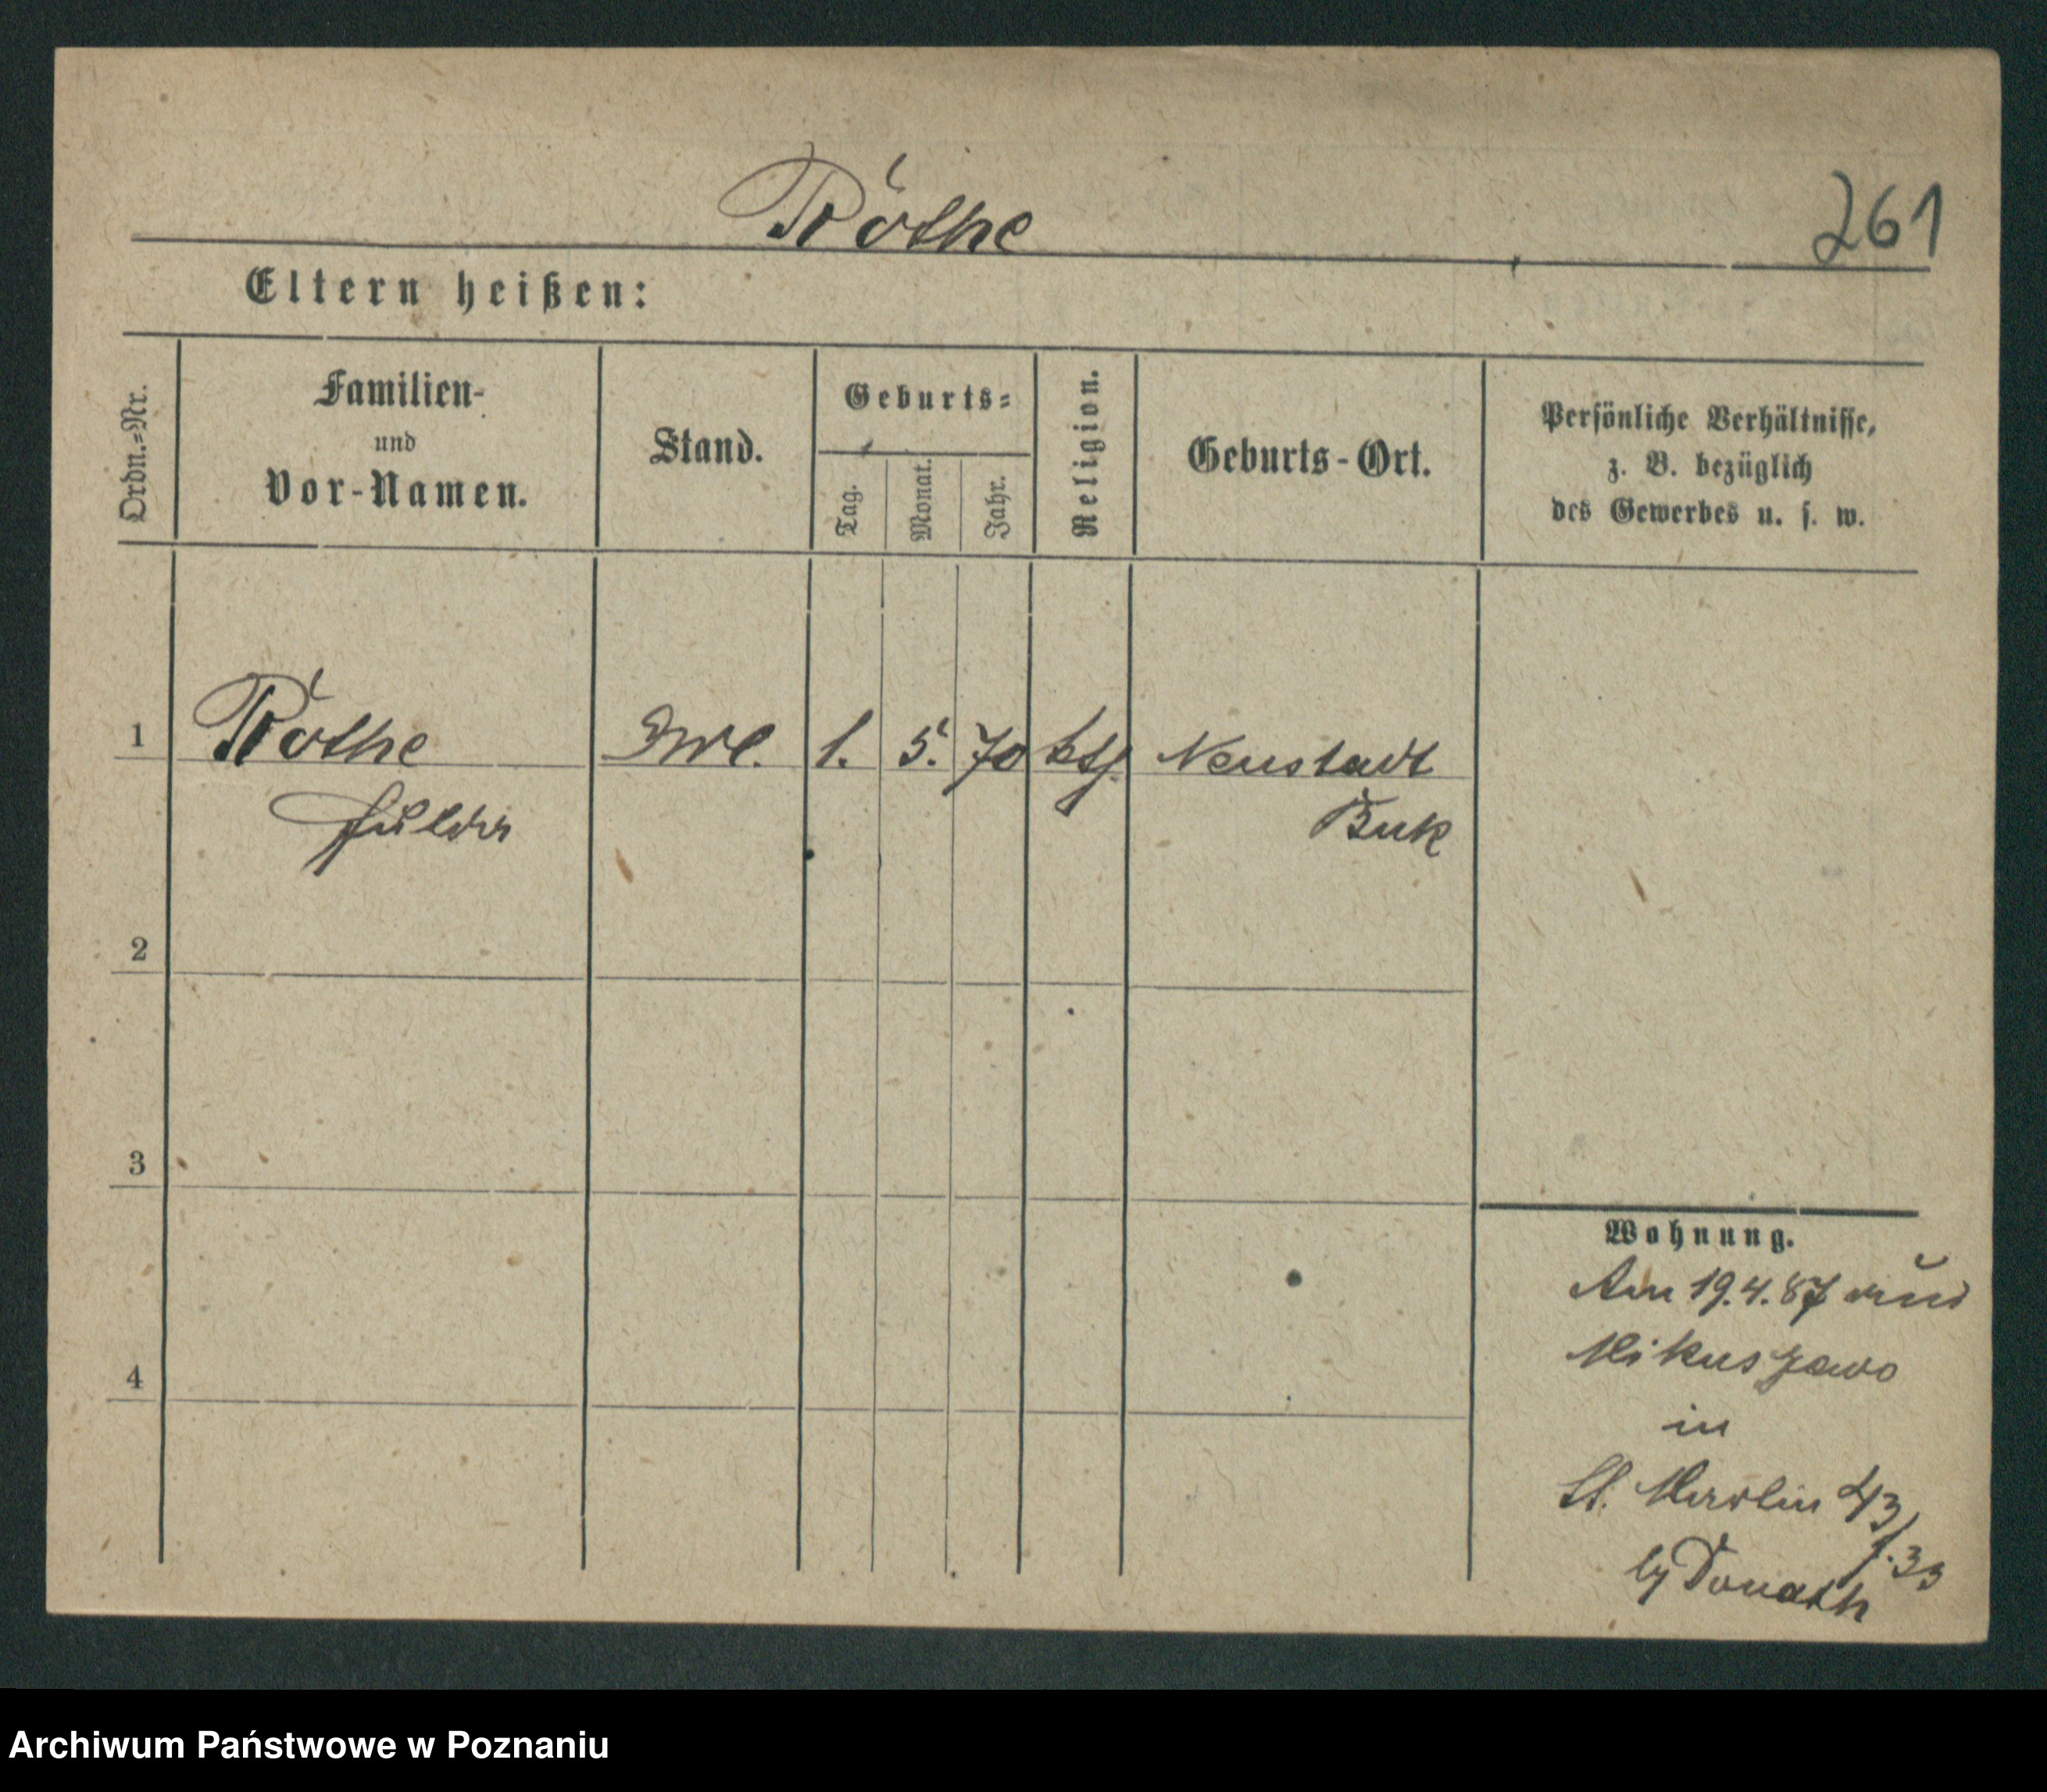 Röthe
261
Eltern heißen:
Ordn.-Nr.
Familien-
und
Vor-Namen.
Stand.
Geburts-
Tag.
Monat.
Jahr.
Religion.
Geburts-Ort.
Persönliche Verhältnisse,
z. B. bezüglich
des Gewerbes u. s. w.
1 Röthe 1. 5. 70 kth Neustadt
Hulda Buk
2
3
4
Wohnung.
Am 19.4.87 aus
Mikuszewo
in
St. Martin 43
by Donath
Archiwum Państwowe w Poznaniu